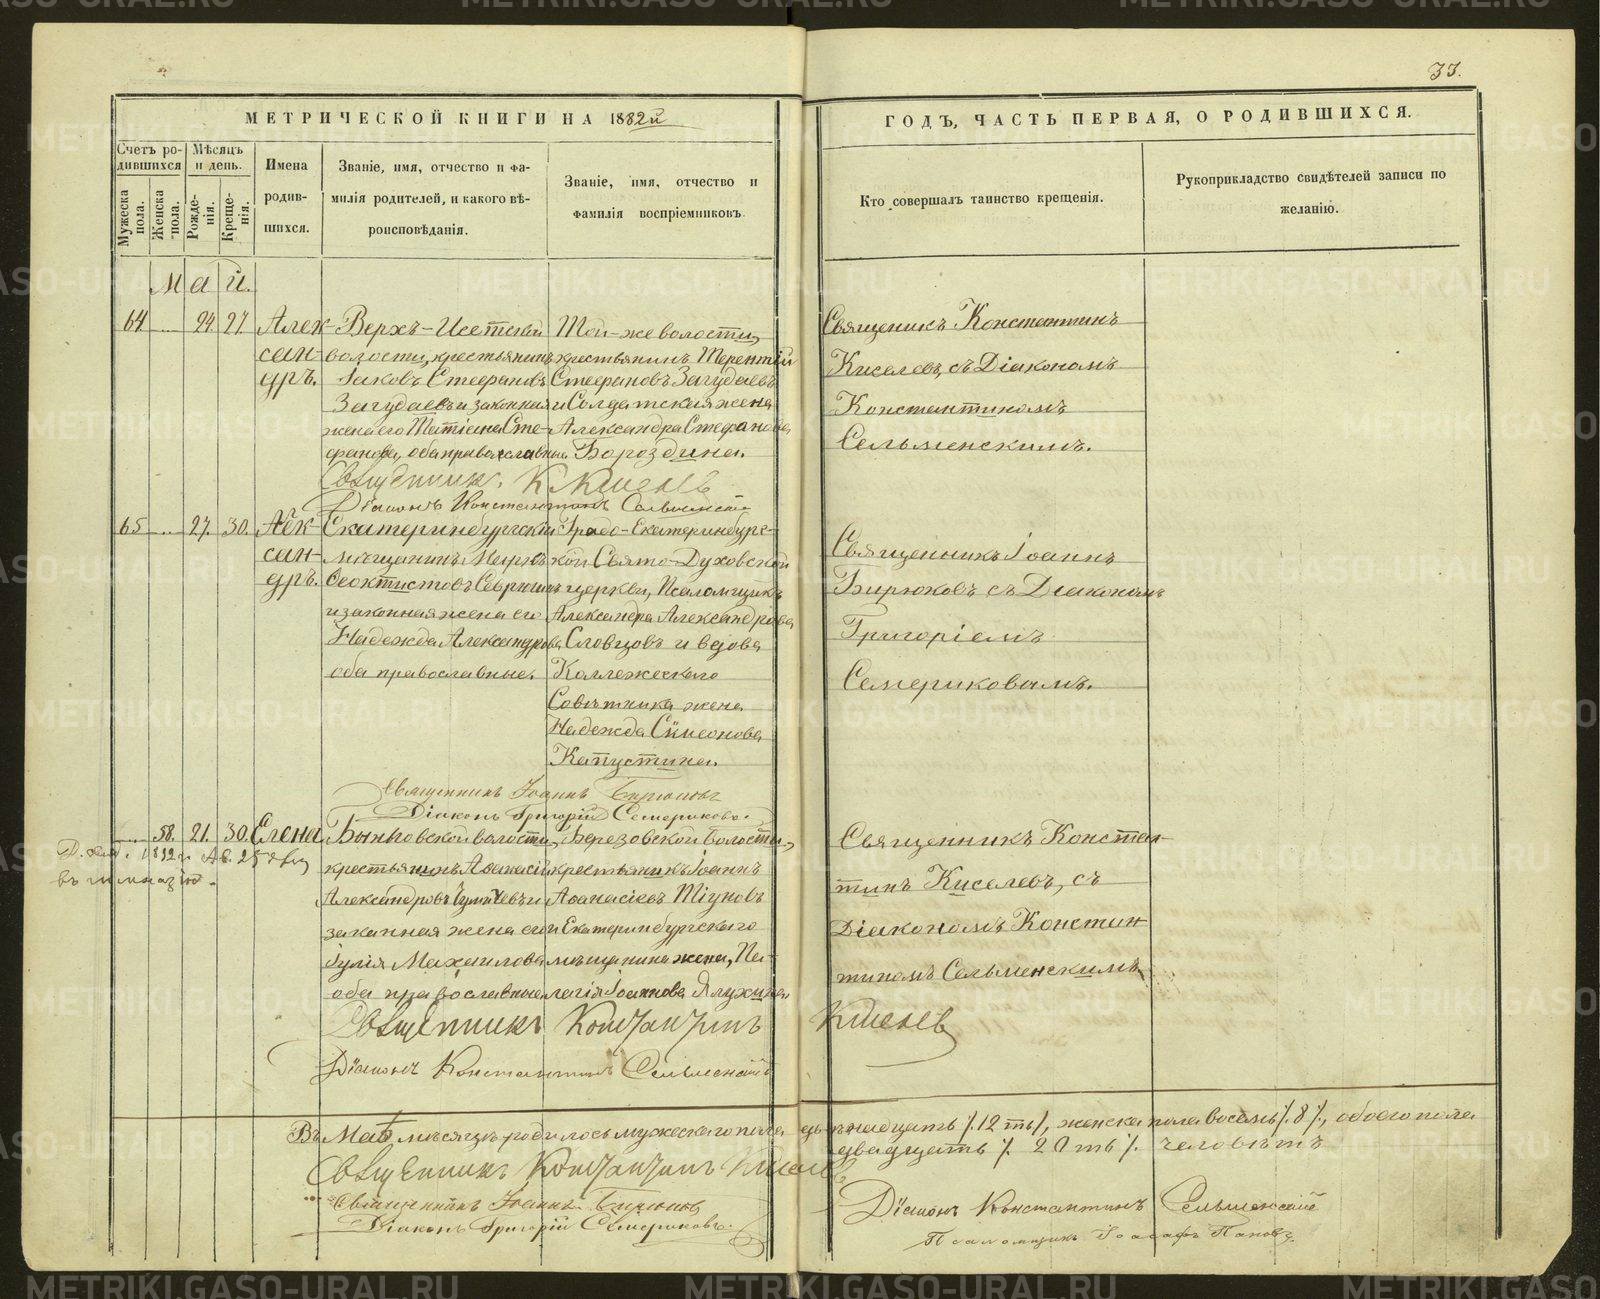 33.
МЕТРИЧЕСКОЙ КНИГИ НА 1882й
ГОДЪ, ЧАСТЬ ПЕРВАЯ, О РОДИВШИХСЯ.
Счетъ родившихся
Мужеска пола.
Женска пола.
Мѣсяцъ и день.
Рожденія.
Крещенія.
Имена родившихся.
Званіе, имя, отчество и фамилія родителей, и какого вѣроисповѣданія.
Званіе, имя, отчество и фамилія воспріемниковъ.
Кто совершалъ таинство крещенія.
Рукоприкладство свидѣтелей записи по желанію.
Май.
64 24. 27
Алек-
сан-
дръ.
Верхъ-Исетской
волости, крестьянинъ
Іаковъ Стефановъ
Загудаевъ и законная
жена его Татіана Сте-
фанова, оба православные.
Той-же волости,
крестьянинъ Терентій
Стефановъ Загудаевъ
и Солдатская жена
Александра Стефанова
Бороздина.
Священникъ Константинъ
Киселевъ, съ Діакономъ
Константиномъ
Сельменскимъ.
Священникъ К. Киселевъ
Діаконъ Константинъ Сельменскій
65 27. 30.
Алек-
сан-
дръ.
Екатеринбургскій
мѣщанинъ
Ѳеоктистовъ
и законная жена его
Надежда Александрова
оба православные.
Градо-Екатеринбургс-
кой Свято-Духовской
церкви, Псаломщикъ
Александръ Александровъ
Словцовъ и вдова
Коллежскаго
Совѣтника жена
Надежда Симеонова
Капустина.
Священникъ Іоаннъ
Бирюковъ съ Діакономъ
Григоріемъ
Семериковымъ.
Священникъ Іоаннъ Бирюковъ
Діаконъ Григорій Семериковъ.
58. 21. 30.
Елена
1892 г. Ав. 25
въ гимназію.
Бынговской волости,
крестьянинъ Аѳанасій
Александровъ
законная жена его
Іулія Михаилова
оба православные
Березовской волости,
крестьянинъ Іоаннъ
Аѳанасіевъ Тіуновъ
и Екатеринбургскаго
мѣщанина жена, Пе-
лагія Іоаннова Ялухина
Священникъ Констан-
тинъ Киселевъ, съ
Діакономъ Констан-
тиномъ Сельменскимъ.
Священникъ Константинъ Киселевъ
Діаконъ Константинъ Сельменскій
Въ Маѣ мѣсяцѣ родилось мужескаго пола двѣнадцать /.12ть/, женска пола восемь /.8/., обоего пола
двадцать /. 20ть/. человѣкъ
Священникъ Константинъ Киселевъ
Священникъ Іоаннъ Бирюковъ
Діаконъ Григорій Семериковъ.
Діаконъ Константинъ Сельменскій
Псаломщикъ Іоасафъ Пановъ.
METRIKI.GASO-URAL.RU